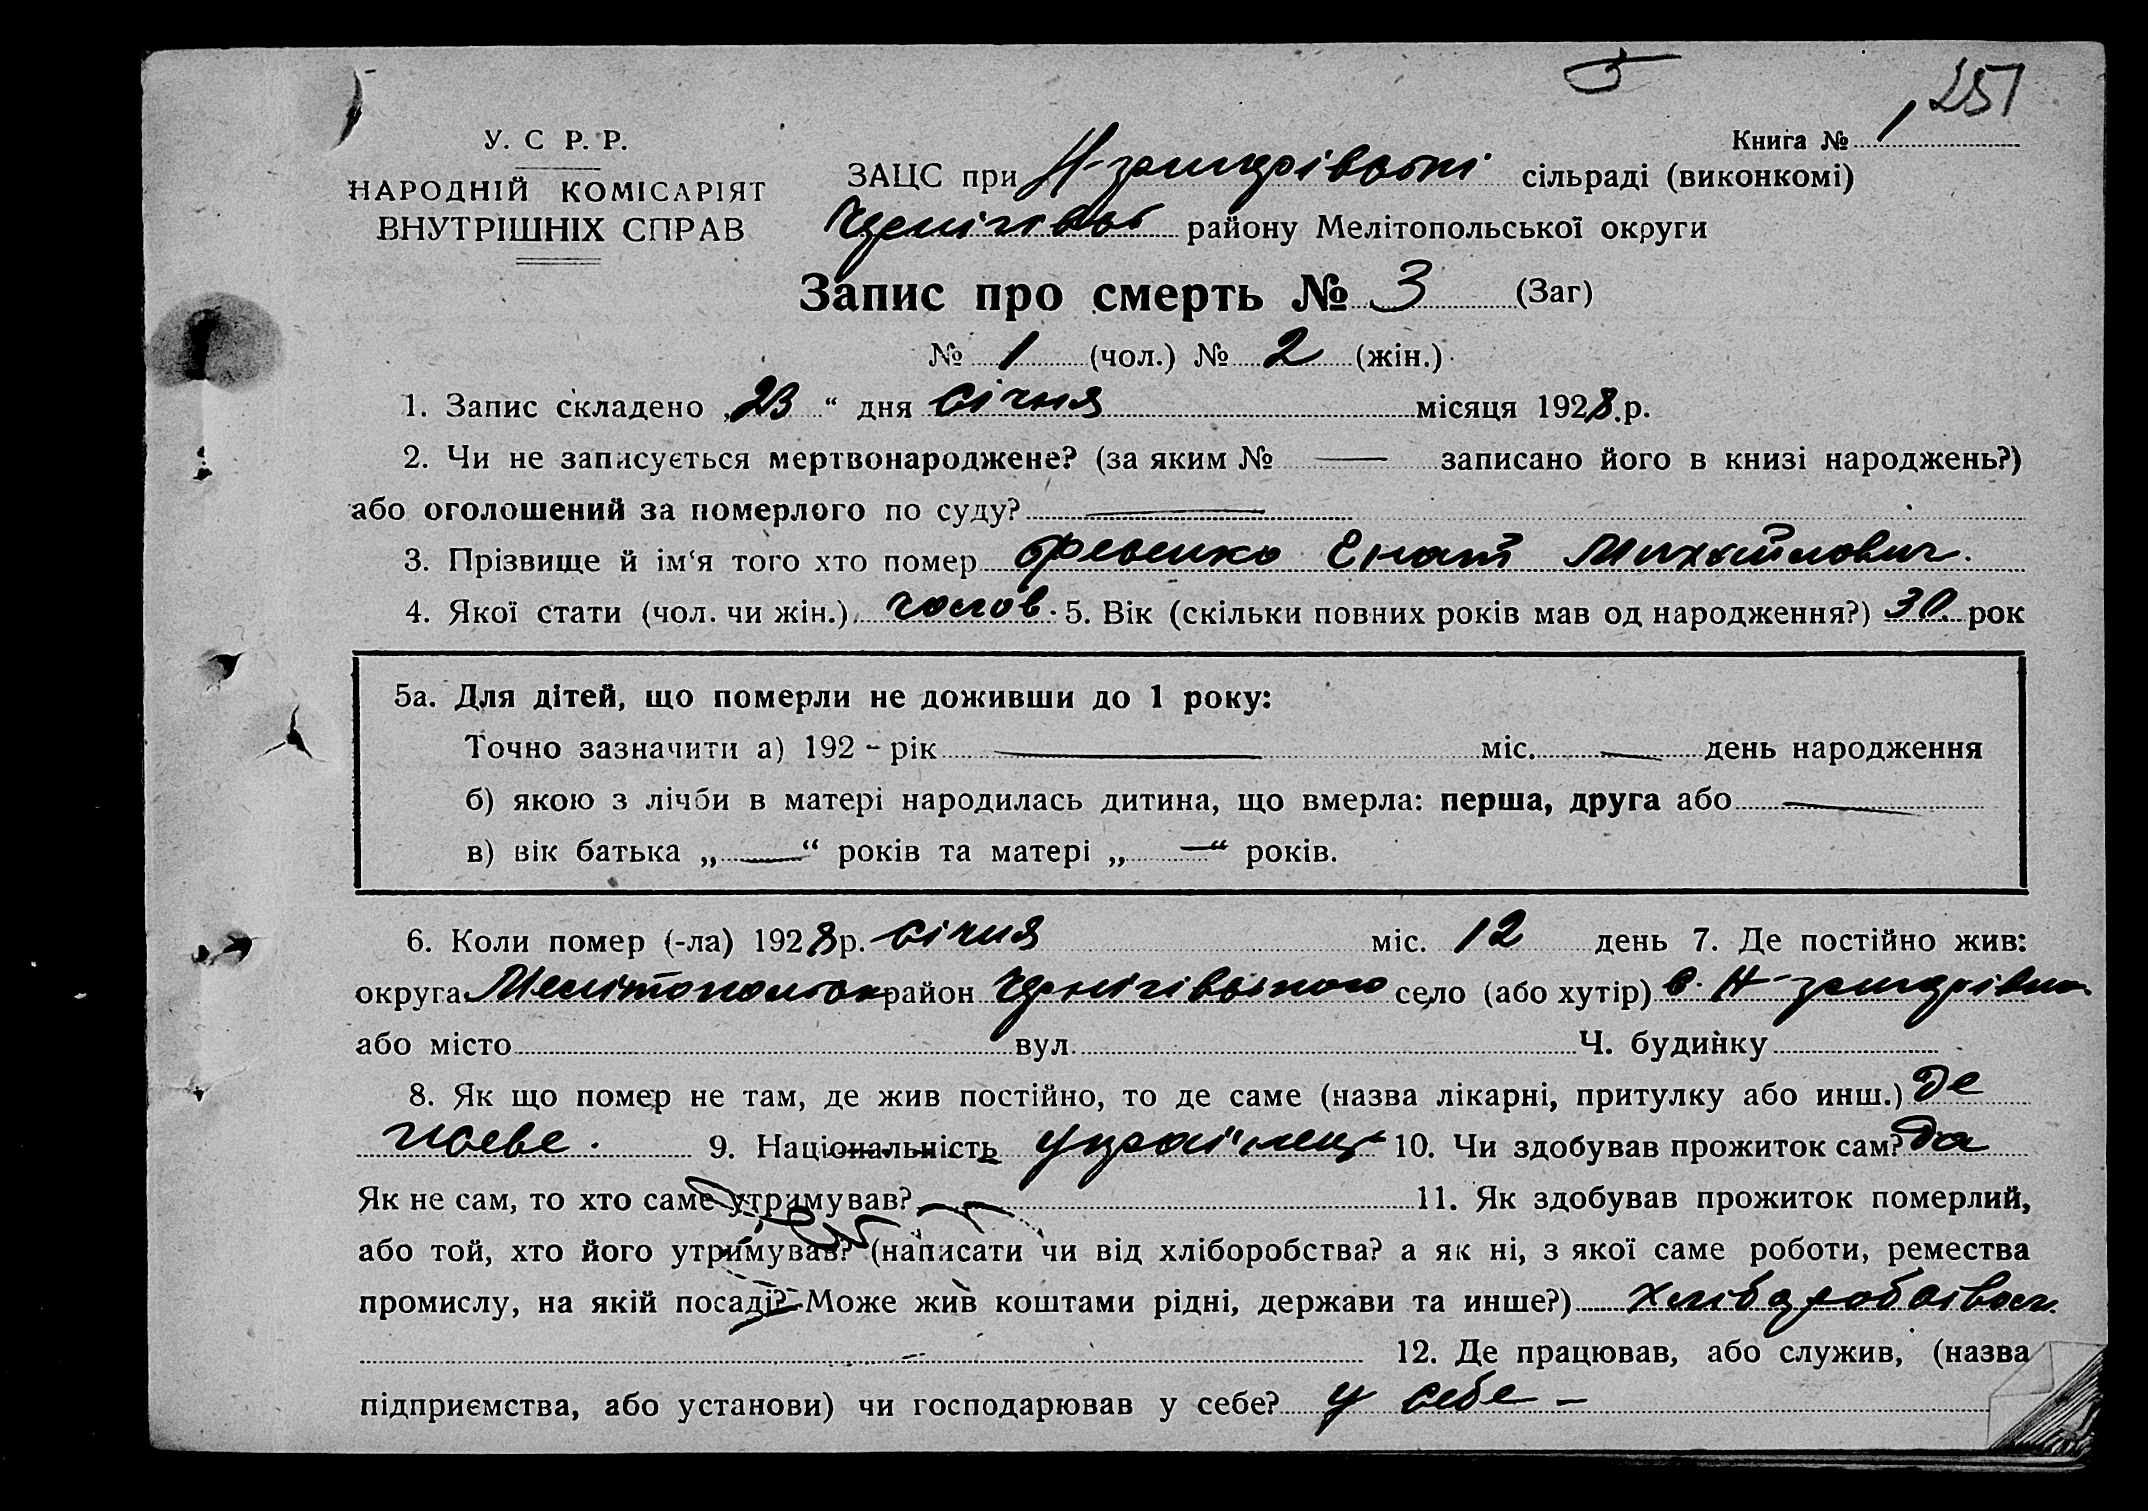 251
Книга № 1
У. С Р. Р.
НАРОДНІЙ КОМІСАРІЯТ
ВНУТРІШНІХ СПРАВ
ЗАЦС при сільраді (виконкомі)
району Мелітопольської округи
Запис про смерть № 3 (Заг)
№ 1 (чол.) № 2 (жін.)
1. Запис складено „23“ дня січня місяця 1928 р.
2. Чи не записується мертвонароджене? (за яким № — записано його в книзі народжень?)
або оголошений за померлого по суду? —
3. Прізвище й ім‘я того хто помер Михайлович.
4. Якої стати (чол. чи жін.) чолов. 5. Вік (скільки повних років мав од народження?) 30. рок
5а. Для дітей, що померли не доживши до 1 року:
Точно зазначити а) 192 - рік — міс. — день народження
б) якою з лічби в матері народилась дитина, що вмерла: перша, друга або —
в) вік батька „—“ років та матері „—“ років.
6. Коли помер (-ла) 1928 р. січня міс. 12 день 7. Де постійно жив:
округа район село (або хутір) в.
або місто вул. Ч. будинку
8. Як що помер не там, де жив постійно, то де саме (назва лікарні, притулку або инш.) Де
9. Національність українец 10. Чи здобував прожиток сам? Да
Як не сам, то хто саме утримував? 11. Як здобував прожиток померлий,
або той, хто його утримував? (написати чи від хліборобства? а як ні, з якої саме роботи, ремества
промислу, на якій посаді? Може жив коштами рідні, держави та инше?)
12. Де працював, або служив, (назва
підприємства, або установи) чи господарював у себе? у себе —